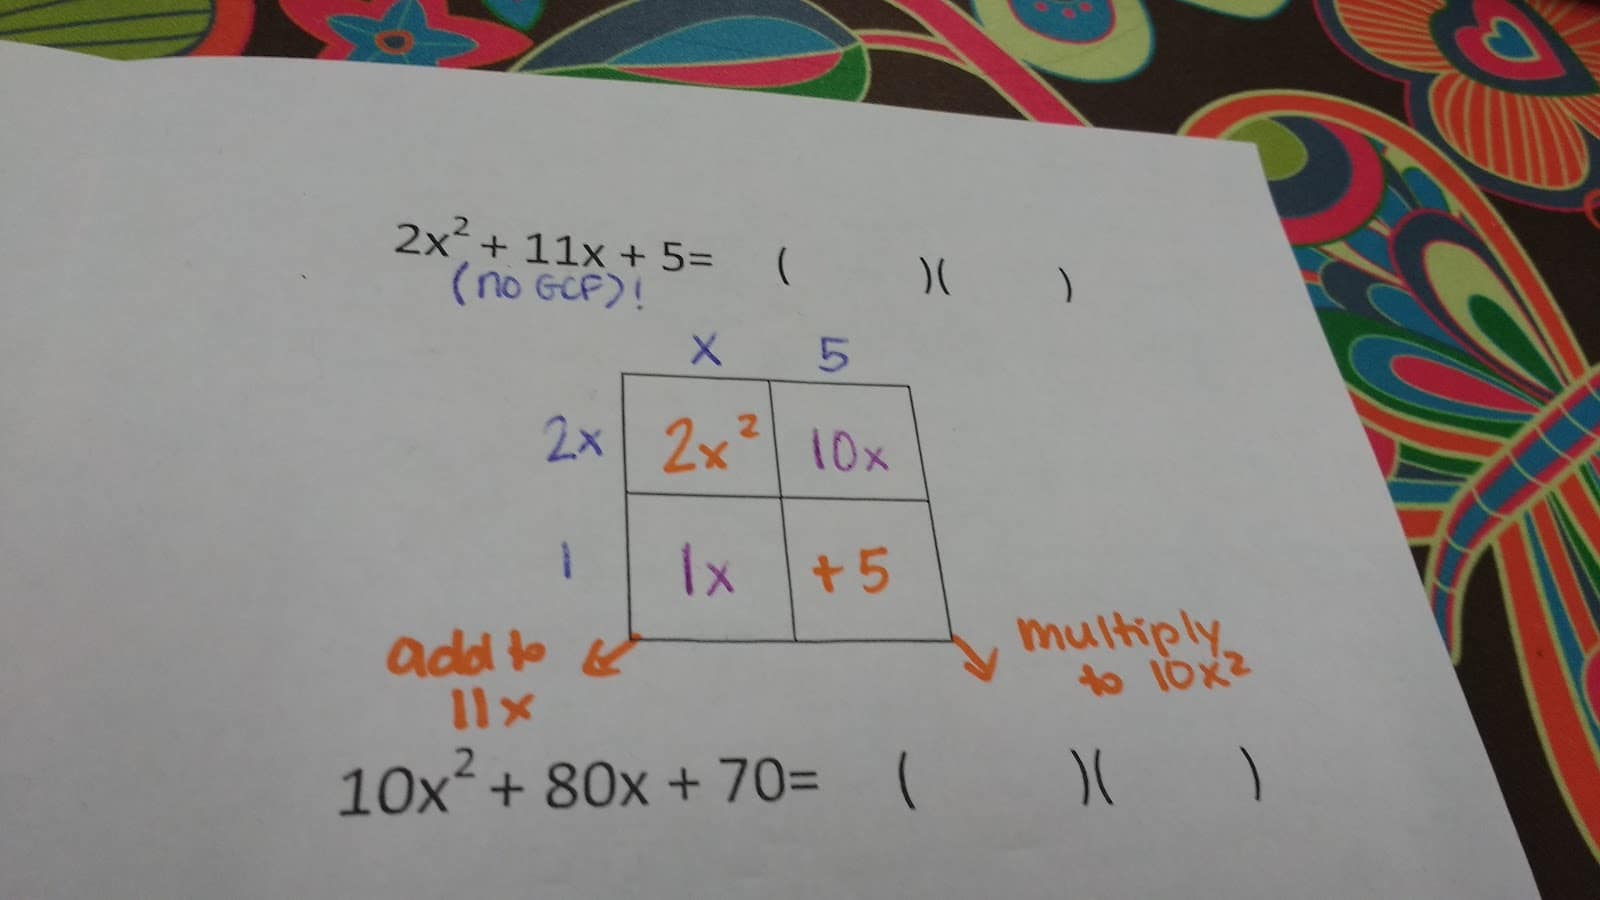 2x² + 11x + 5= ( )( )
(no GCF)!
x 5
2x 2x² 10x
1 1x +5
add to multiply
11x to 10x²
10x² + 80x + 70= ( )( )